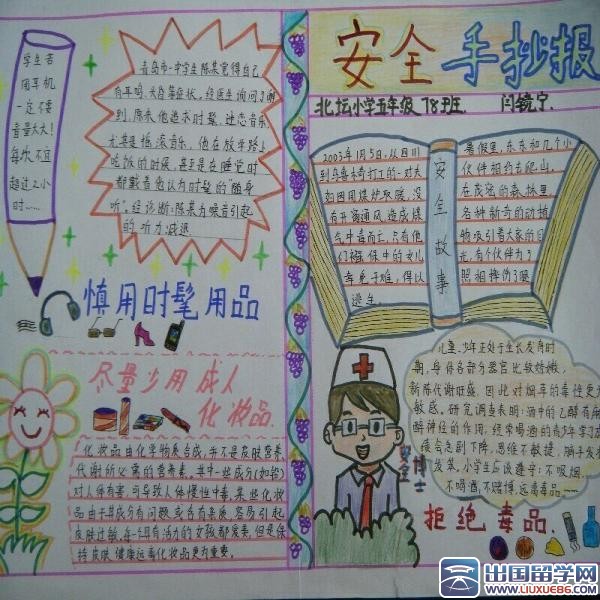 安全 手抄报
北坛小学五年级78班. 闫镜宁.
学生若
用耳机
一定不要
音量太大!
每次不宜
超过2小
时……
青岛市一中学生陈某觉得自己
有耳鸣、头昏等症状,经医生询问了解
到,原来他追求时髦,迷恋音乐,
尤其是摇滚音乐,他在放学路上
吃饭的时候,甚至是在睡觉时
都戴着他认为时髦的“随身
听”.经诊断:陈某为噪音引起
的听力减退
慎用时髦用品
安全故事
2003年1月5日,从四川
到乌鲁木齐打工的一对夫
如因用煤炉取暖,没
有开窗通风造成煤
气中毒而亡,只有他
们襁褓中的女儿
幸免于难,得以
逃生.
暑假里,东东和几个小
伙伴相约去爬山,
在茂密的森林里
各种新奇的动植
物吸引着大家的目
光,有个伙伴为了
照相摔伤了腿
尽量少用成人
化妆品.
化妆品由化学物质合成,并不是皮肤营养、
代谢所必需的营养素。其中一些成分(如铅)
对人体有害,可导致人体慢性中毒,某些化妆
品由于其成分有问题或含有杂质,容易引起
皮肤过敏,每一个年有活力的女孩都爱美,但是保
持皮肤健康远离化妆品更为重要。
儿童、少年正处于生长发育时
期,身体各部分器官比较娇嫩,
新陈代谢旺盛,因此对烟草的毒性更为
敏感。研究调查表明:酒中的乙醇有麻
醉神经的作用,经常喝酒的青少年学习成
绩会急剧下降,思维不敏捷,
小学生应该遵守:不吸烟、
不喝酒,不赌博,远离毒品……
安全博士
拒绝毒品.
出国留学网
www.liuxue86.com